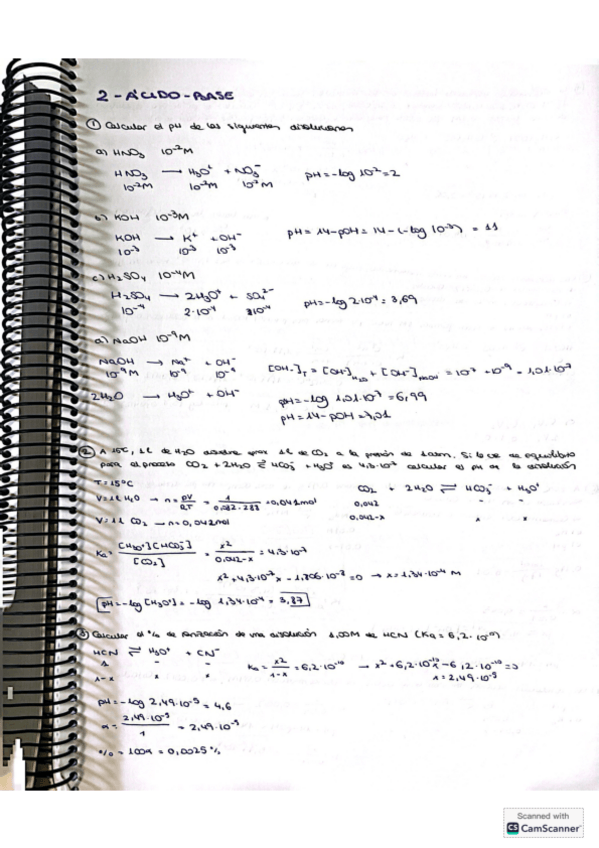 2-ÁCIDO-BASE
① Calcular el pH de las siguientes disoluciones
a) HNO3 10⁻²M
HNO3 → H3O⁺ + NO3⁻ pH=-log 10⁻²=2
10⁻²M 10⁻²M 10⁻²M
b) KOH 10⁻³M
KOH → K⁺ + OH⁻ pH= 14-pOH= 14-(-log 10⁻³) = 11
10⁻³ 10⁻³ 10⁻³
c) H2SO4 10⁻⁴M
H2SO4 → 2H3O⁺ + SO4²⁻ pH=-log 2·10⁻⁴= 3,69
10⁻⁴ 2·10⁻⁴ 10⁻⁴
d) NaOH 10⁻⁹M
NaOH → Na⁺ + OH⁻ [OH-]T = [OH⁻]H2O + [OH⁻]NaOH = 10⁻⁷ + 10⁻⁹ = 1,01·10⁻⁷
10⁻⁹M 10⁻⁹ 10⁻⁹
2H2O → H3O⁺ + OH⁻ pH=-log 1,01·10⁻⁷ = 6,99
pH= 14-pOH= 7,01
② A 15ºC, 1L de H2O disuelve 1L de CO2 a la presión de 1atm. Si la cte de equilibrio
para el proceso CO2 + 2H2O ⇌ HCO3⁻ + H3O⁺ es 4,3·10⁻⁷ calcular el pH de la disolución
T= 15ºC
V= 1L H2O → n= PV/RT = 1/0,082·288 = 0,042mol CO2 + 2H2O ⇌ HCO3⁻ + H3O⁺
0,042 - -
V= 1L CO2 → n= 0,042mol 0,042-x x x
Ka= [H3O⁺][HCO3⁻]/[CO2] = x²/0,042-x = 4,3·10⁻⁷
x² + 4,3·10⁻⁷x - 1,806·10⁻⁸ = 0 → x= 1,34·10⁻⁴ M
pH=-log [H3O⁺] = -log 1,34·10⁻⁴ = 3,87
③ Calcular el % de ionización de una disolución 1,00M de HCN (Ka= 6,2·10⁻¹⁰)
HCN ⇌ H3O⁺ + CN⁻
1 - - Ka= x²/1-x = 6,2·10⁻¹⁰ → x² + 6,2·10⁻¹⁰ - 6,2·10⁻¹⁰ = 0
1-x x x x= 2,49·10⁻⁵
pH=-log 2,49·10⁻⁵ = 4,6
α= 2,49·10⁻⁵/1 = 2,49·10⁻⁵
% = 100α = 0,0025 %
Scanned with
CS CamScanner